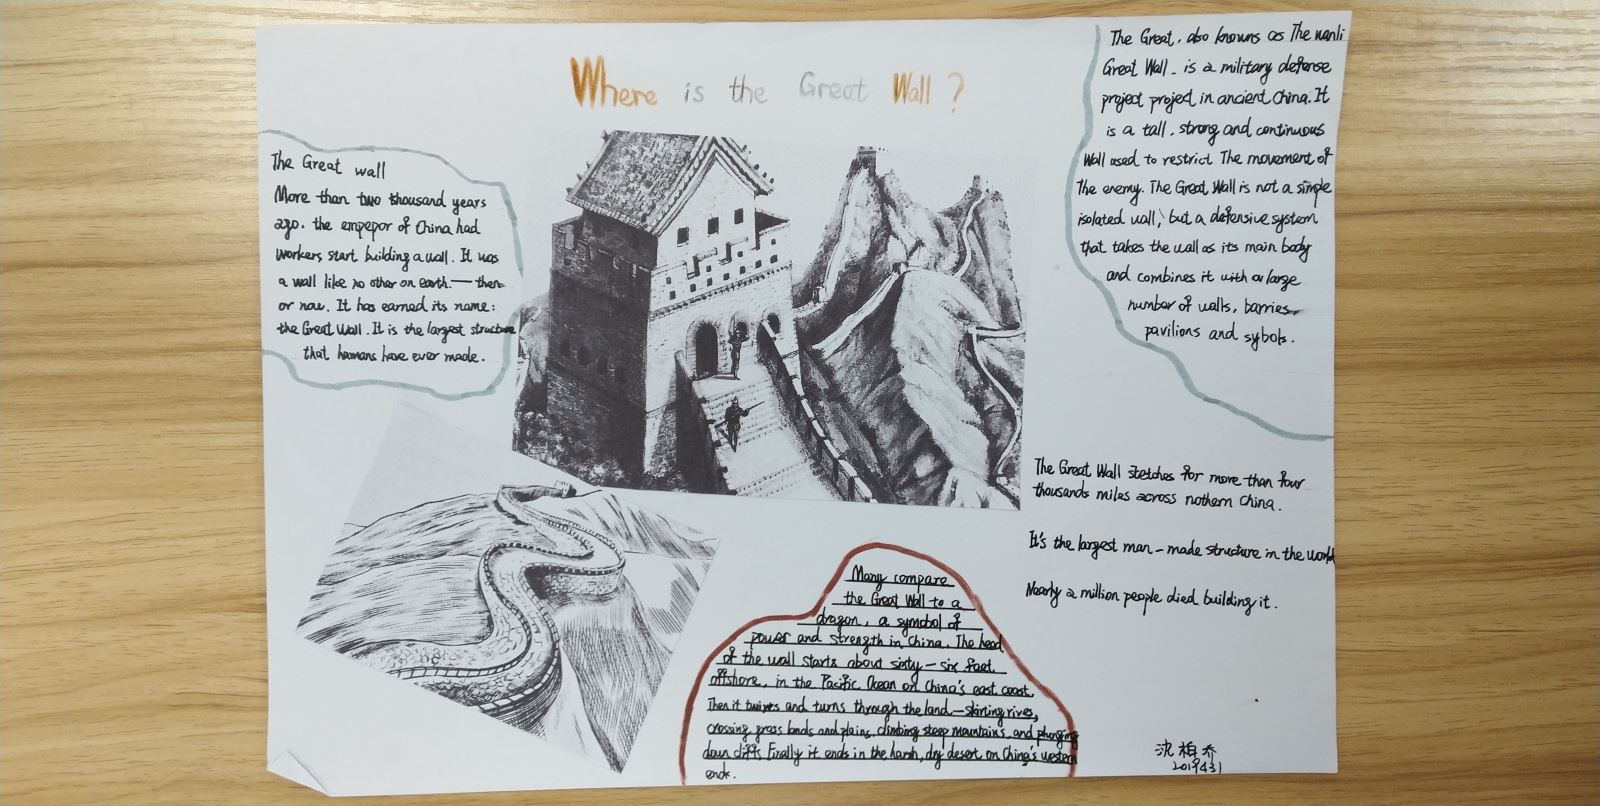 Where is the Great Wall ?
The Great wall
More than two thousand years
ago. the empepor of China had
workers start building a wall. It was
a wall like no other on earth.—then
or now. It has earned its name:
the Great Wall. It is the largest structure
that homans have ever made.
The Great, also knowns as The wanli
Great Wall, is a military defense
project project in ancient China. It
is a tall, strong and continuous
Wall used to restrict The movement of
The enemy. The Great Wall is not a simple
isolated wall, but a defensive system
that takes the wall as its main body
and combines it with a large
number of walls, barries,
pavilions and sybols.
The Great Wall stetches for more than four
thousands miles across nothern China.
It's the largest man-made structure in the world
Nearly a million people died building it.
Many compare
the Great Wall to a
dragon, a symbol of
power and strength in China. The head
of the wall starts about sixty-six feet
offshore, in the Pacific Ocean on China's east coast.
Then it twines and turns through the land—skirting rives,
crossing grass lands and plains, climbing steep mountains, and plunging
down cliffs. Finally it ends in the harsh, dry desert on China's western
ends.
沈柏乔